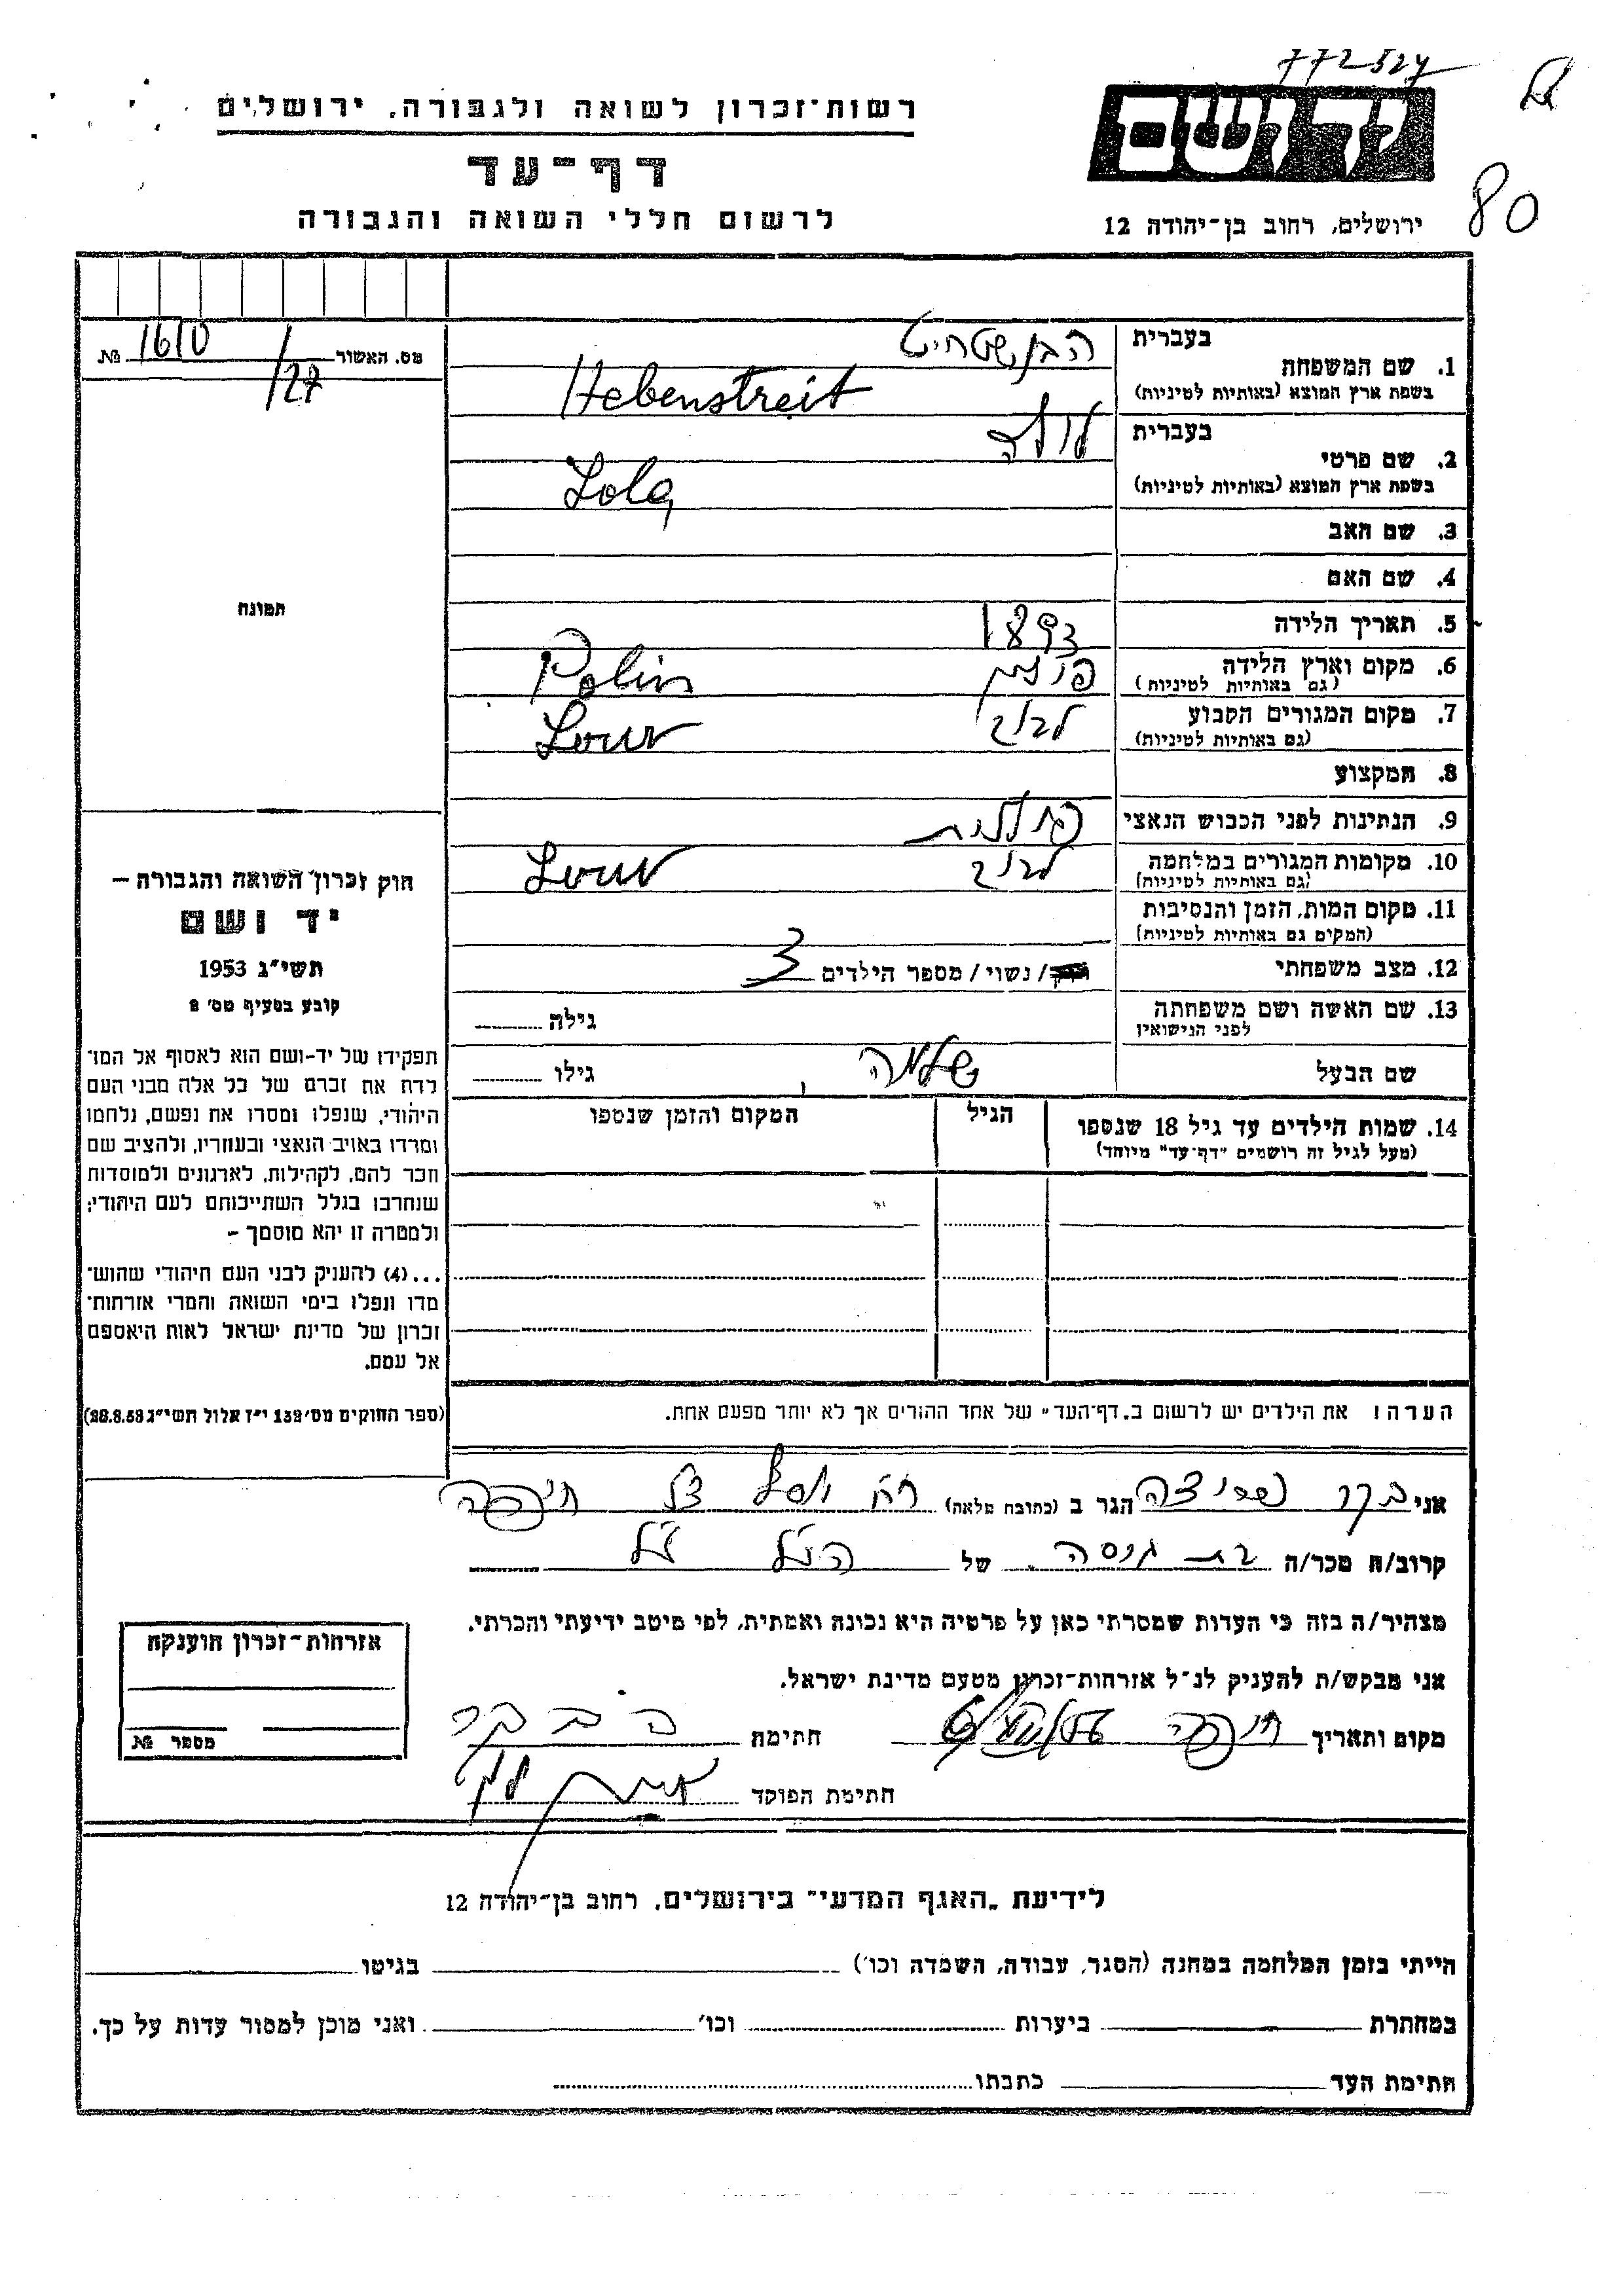 772524
80
יד ושם
ירושלים, רחוב בן־יהודה 12
רשות־זכרון לשואה ולגבורה, ירושלים
דף־עד
לרשום חללי השואה והגבורה
מס. האשור 1610/27 №
תמונה
חוק זכרון השואה והגבורה —
יד ושם
תשי״ג 1953
קובע בסעיף מס׳ 2
תפקידו של יד-ושם הוא לאסוף אל המו־
לדת את זכרם של כל אלה מבני העם
היהודי, שנפלו ומסרו את נפשם, נלחמו
ומרדו באויב הנאצי ובעוזריו, ולהציב שם
וזכר להם, לקהילות, לארגונים ולמוסדות
שנחרבו בגלל השתייכותם לעם היהודי;
ולמטרה זו יהא מוסמך -
...(4) להעניק לבני העם היהודי שהוש־
מדו ונפלו בימי השואה והמרי אזרחות־
זכרון של מדינת ישראל לאות היאספם
אל עמם.
(ספר החוקים מס׳ 132 י״ז אלול תשי״ג 28.8.53)
בעברית
1. שם המשפחה
בשפת ארץ המוצא (באותיות לטיניות) Hebenstreit
בעברית לולה
2. שם פרטי
בשפת ארץ המוצא (באותיות לטיניות) Lola
3. שם האב
4. שם האם
5. תאריך הלידה 1893
6. מקום וארץ הלידה פולין Polin
(גם באותיות לטיניות)
7. מקום המגורים הקבוע לבוב Lowów
(גם באותיות לטיניות)
8. המקצוע
9. הנתינות לפני הכבוש הנאצי פולנית
10. מקומות המגורים במלחמה לבוב
(גם באותיות לטיניות)
11. מקום המות, הזמן והנסיבות
(המקום גם באותיות לטיניות)
12. מצב משפחתי / נשוי / מספר הילדים 3
13. שם האשה ושם משפחתה גילה
לפני הנישואין
שם הבעל שלמה גילו
14. שמות הילדים עד גיל 18 שנספו הגיל המקום והזמן שנספו
(מעל לגיל זה רושמים "דף־עד" מיוחד)
הערה: את הילדים יש לרשום ב„דף־העד" של אחד ההורים אך לא יותר מפעם אחת.
אני הגר ב (כתובת מלאה) רח חיפה
קרוב/ה מכר/ה בת גיסה של הנ״ל
מצהיר/ה בזה כי העדות שמסרתי כאן על פרטיה היא נכונה ואמתית, לפי מיטב ידיעתי והכרתי.
אני מבקש/ת להעניק לנ״ל אזרחות־זכרון מטעם מדינת ישראל.
מקום ותאריך חיפה חתימה
חתימת הפוקד
אזרחות־זכרון הוענקה
מספר №
לידיעת „האגף המדעי" בירושלים, רחוב בן־יהודה 12
הייתי בזמן המלחמה במחנה (הסגר, עבודה, השמדה וכו׳) בגיטו
במחתרת ביערות וכו׳ ואני מוכן למסור עדות על כך.
חתימת העד כתבתו